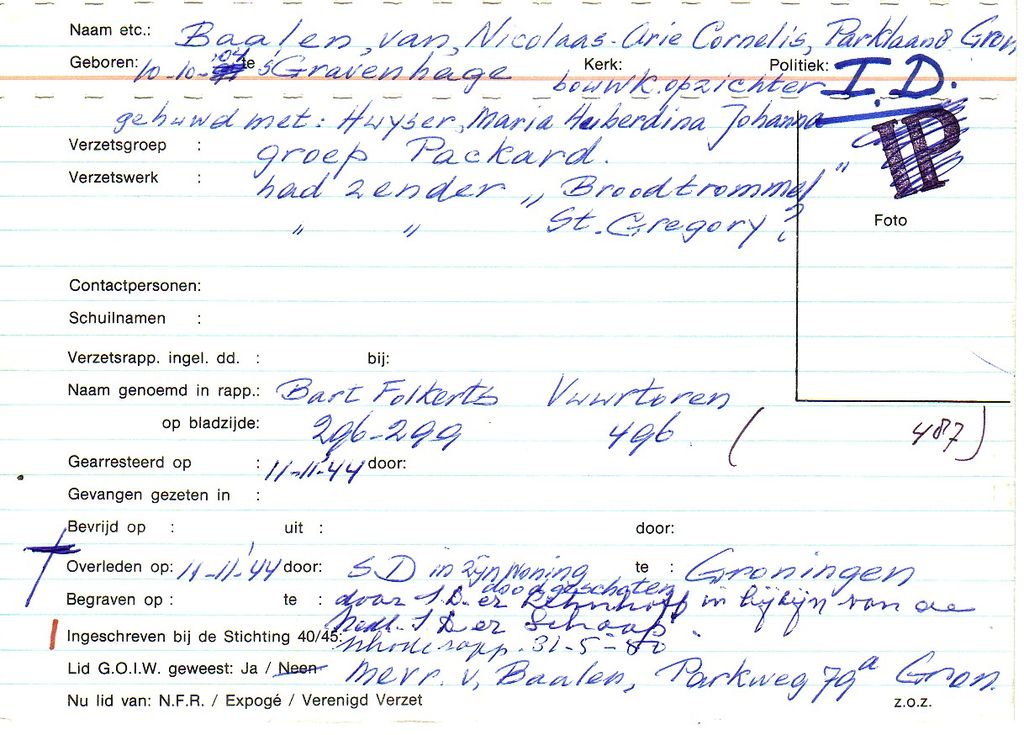 Naam etc.: Baalen, van, Nicolaas-Arie Cornelis, Parklaan Gron
Geboren: 10-10-'04 te 's Gravenhage Kerk: Politiek: I.D.
bouwk. opzichter
gehuwd met: Huyser, Maria Huberdina Johanna
IP
Verzetsgroep : groep Packard.
Verzetswerk : had zender „Broodtrommel"
" " St. Gregory?
Foto
Contactpersonen:
Schuilnamen :
Verzetsrapp. ingel. dd. : bij:
Naam genoemd in rapp.: Bart Folkerts Vuurtoren
op bladzijde: 296-299 496 (487)
Gearresteerd op : 11-11-'44 door:
Gevangen gezeten in :
Bevrijd op : uit : door:
Overleden op: 11-11-'44 door: SD in zijn woning te : Groningen
doodgeschoten
Begraven op : te : door S.D.er Lehnhoff in bijzijn van de
Nedl. S.D.er Schaap.
Ingeschreven bij de Stichting 40/45: rapp. 31-5-80
Lid G.O.I.W. geweest: Ja / Neen Mevr. v. Baalen, Parkweg 79a Gron.
Nu lid van: N.F.R. / Expogé / Verenigd Verzet z.o.z.